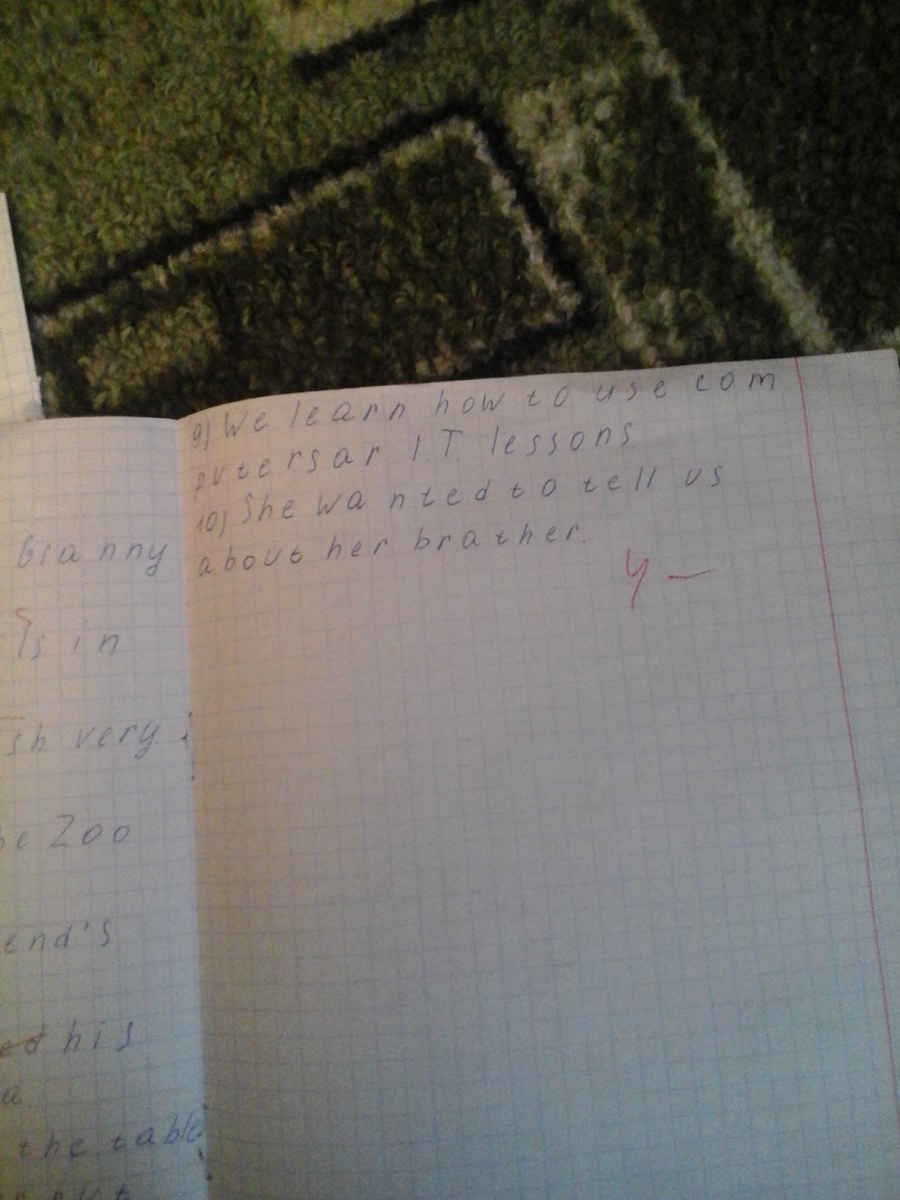 Granny
is in
sh very
he Zoo
end's
ed his
a
the table
9) We learn how to use com
putersar I.T. lessons.
10) She wanted to tell us
about her brather.
4 –